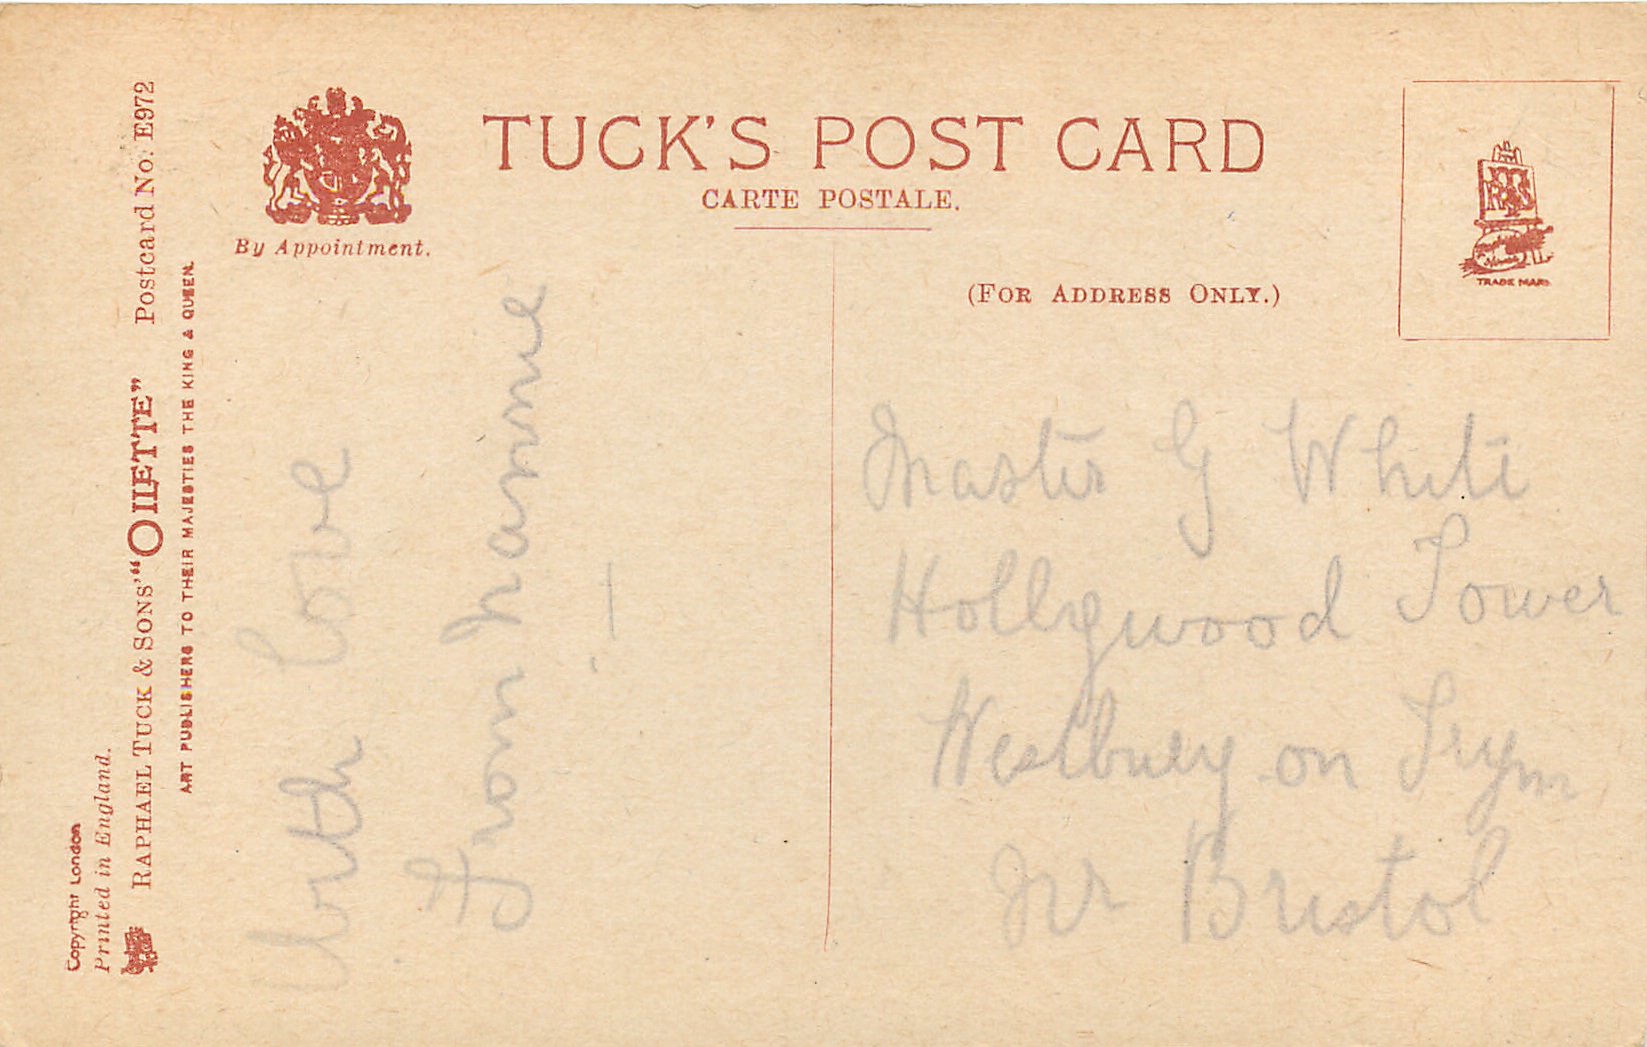 TUCK'S POST CARD
CARTE POSTALE.
By Appointment.
(FOR ADDRESS ONLY.)
TRADE MARK
Copyright London
Printed in England.
RAPHAEL TUCK & SONS' "OILETTE" Postcard No. E972
ART PUBLISHERS TO THEIR MAJESTIES THE KING & QUEEN.
With love
From Nannie
Master G White
Hollywood Tower
Westbury on Trym
Nr Bristol